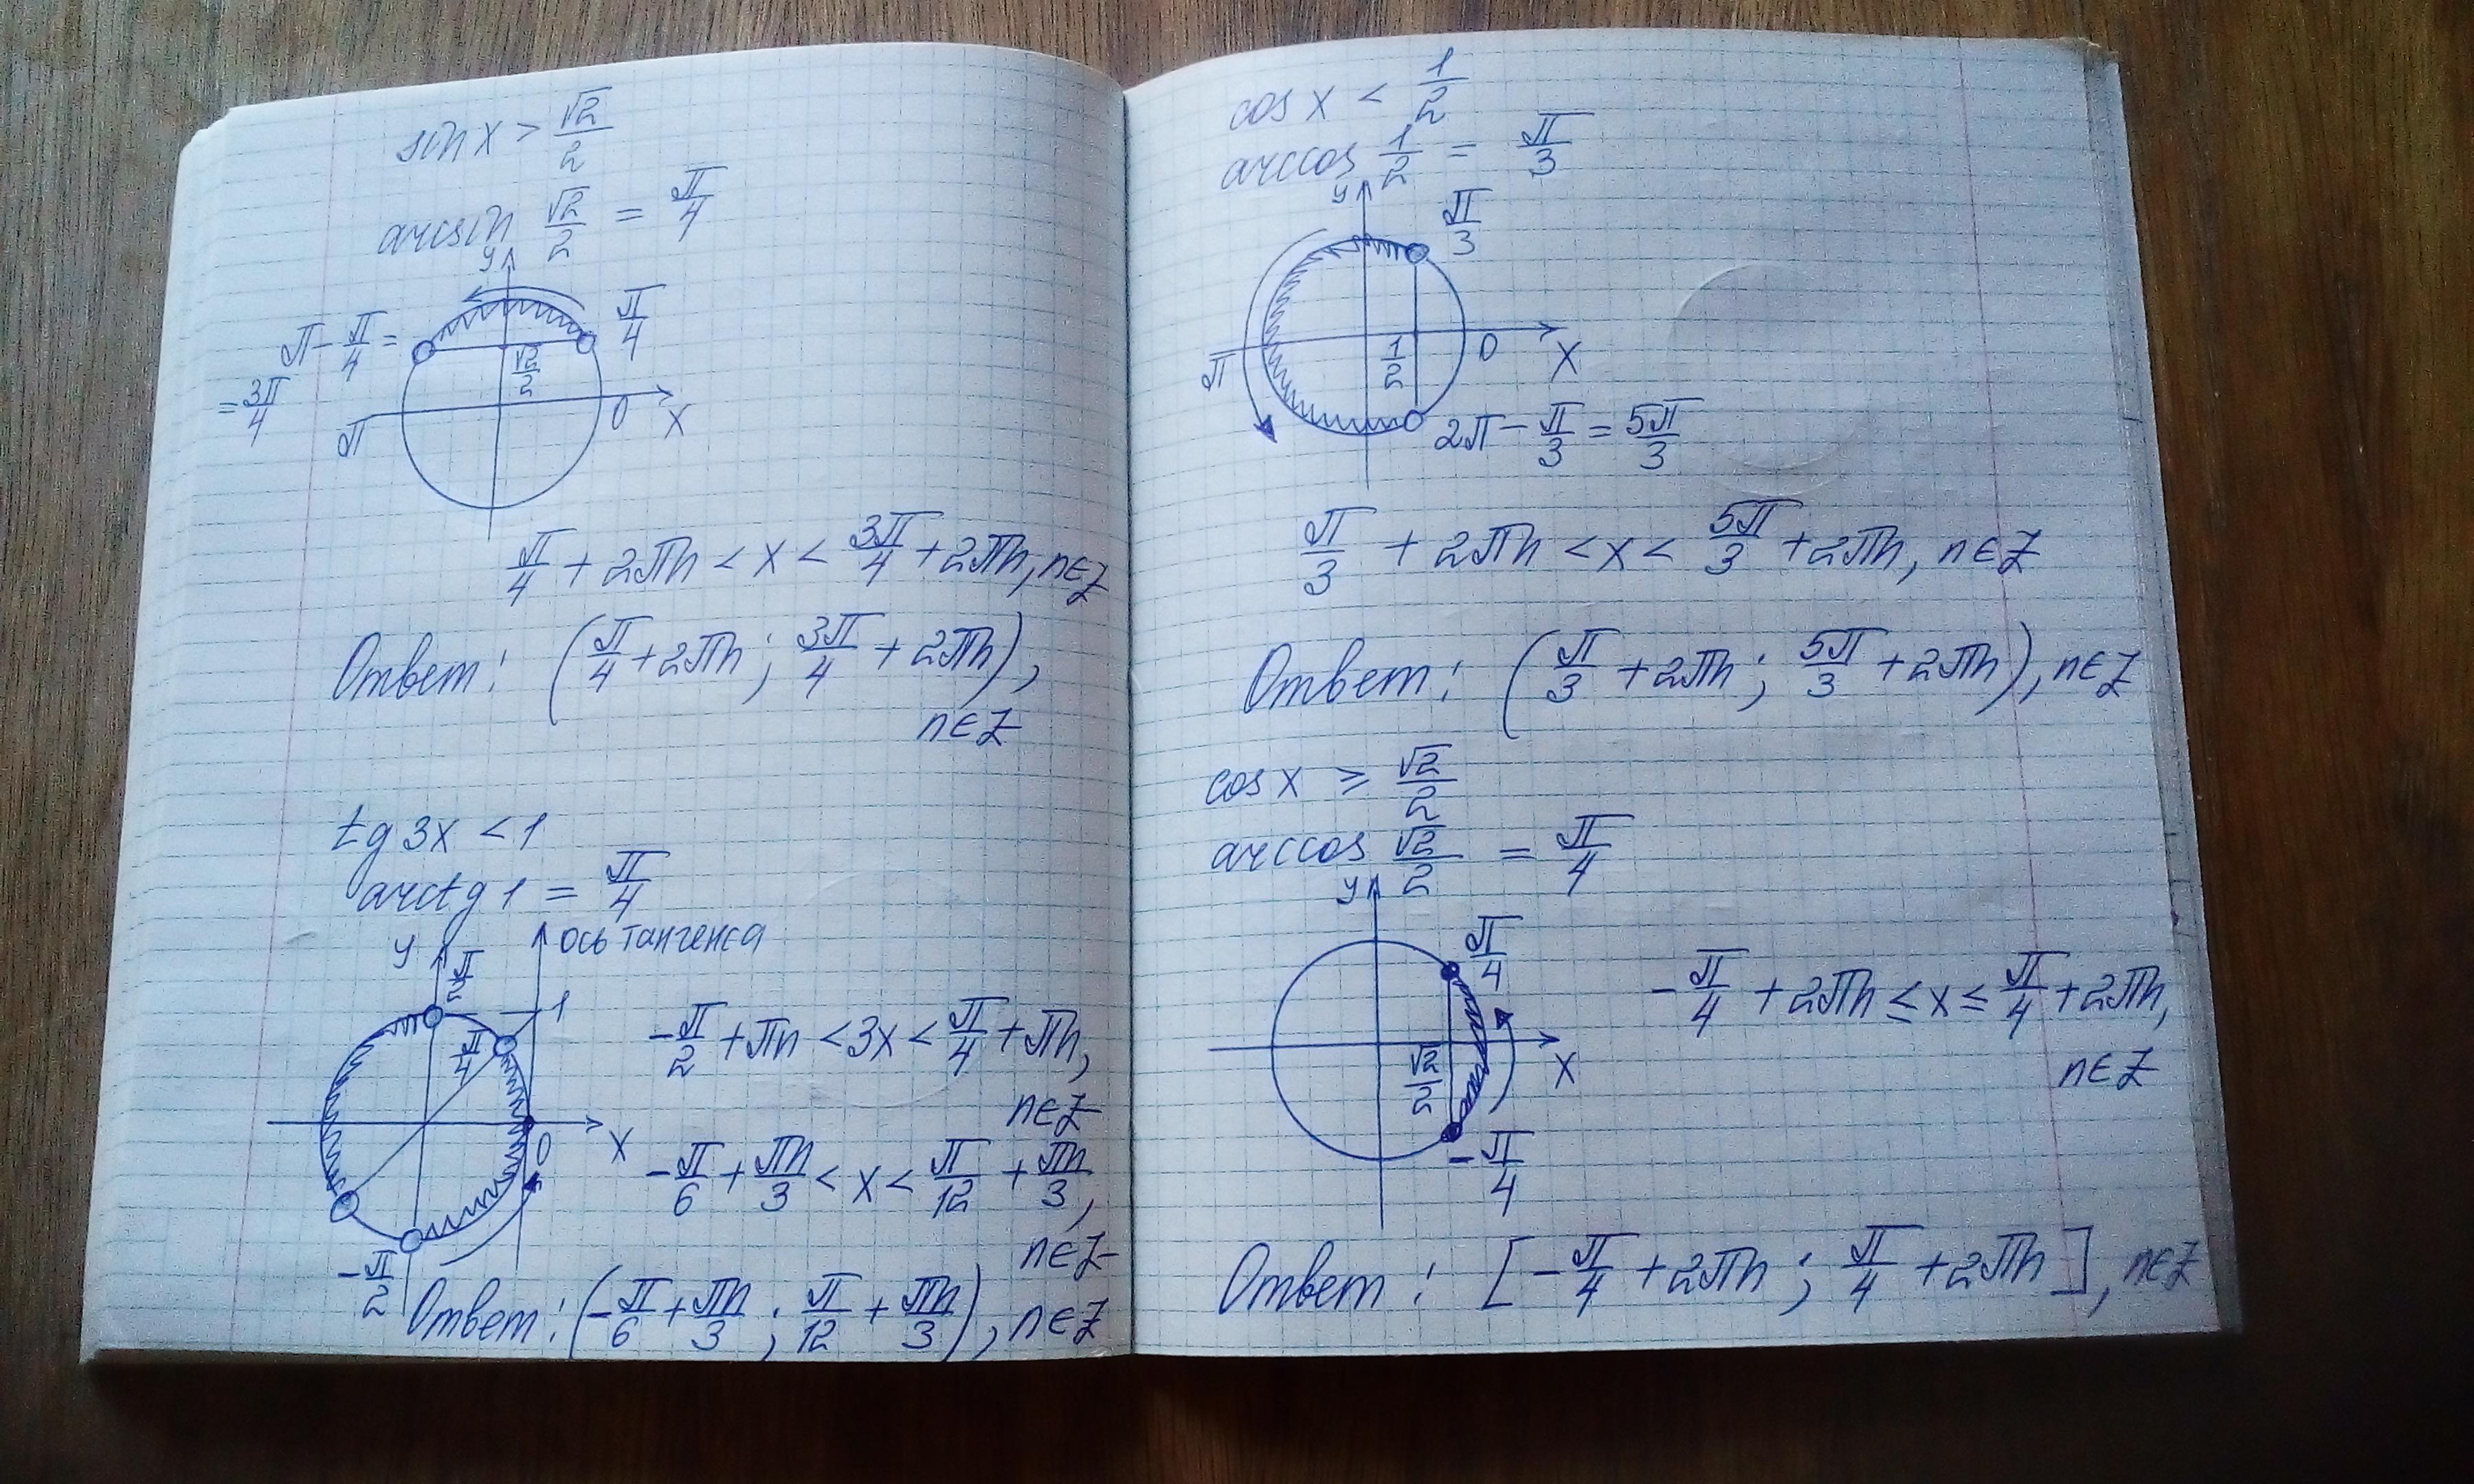 sin x > √2/2
arcsin √2/2 = π/4
y
π - π/4 =
= 3π/4
π/4
√2/2
π
0
x
π/4 + 2πn < x < 3π/4 + 2πn, n∈Z
Ответ: (π/4 + 2πn; 3π/4 + 2πn),
n∈Z
tg 3x < 1
arctg 1 = π/4
y
π/2
ось тангенса
1
π/4
0
x
-π/2
-π/2 + πn < 3x < π/4 + πn,
n∈Z
-π/6 + πn/3 < x < π/12 + πn/3,
n∈Z
Ответ: (-π/6 + πn/3; π/12 + πn/3), n∈Z
cos x < 1/2
arccos 1/2 = π/3
y
π/3
π
1/2
0
x
2π - π/3 = 5π/3
π/3 + 2πn < x < 5π/3 + 2πn, n∈Z
Ответ: (π/3 + 2πn; 5π/3 + 2πn), n∈Z
cos x ≥ √2/2
arccos √2/2 = π/4
y
π/4
√2/2
x
-π/4
-π/4 + 2πn ≤ x ≤ π/4 + 2πn,
n∈Z
Ответ: [-π/4 + 2πn; π/4 + 2πn], n∈Z